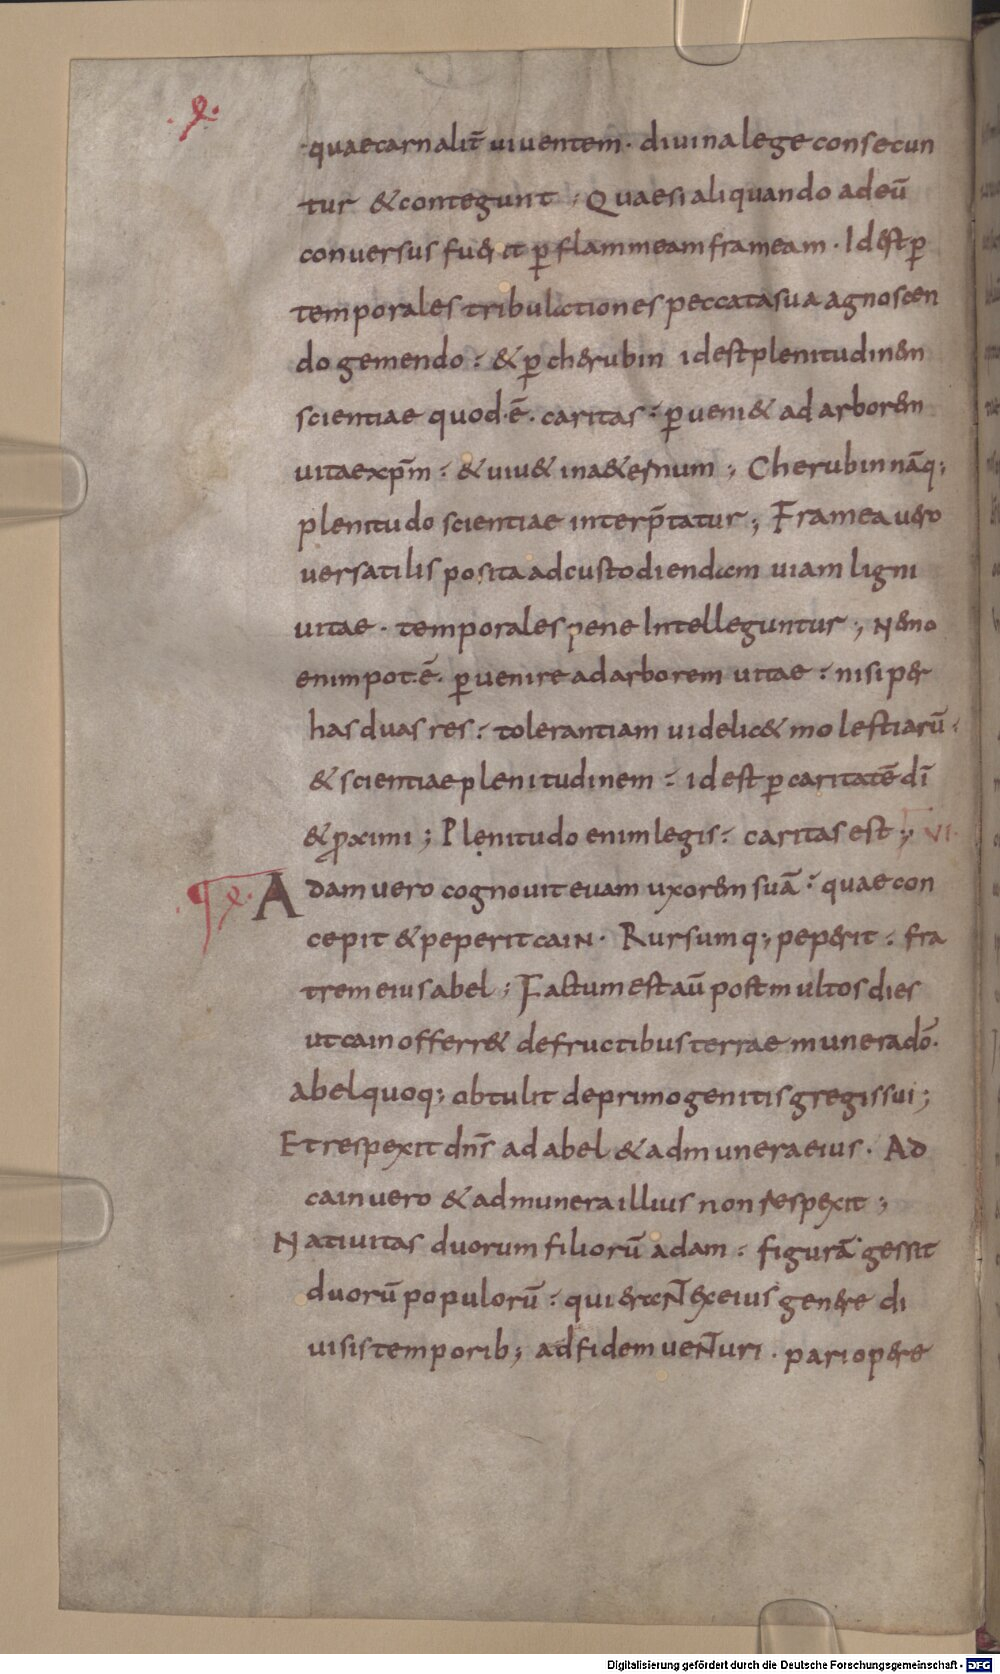 quae carnalit̄ uiuentem · diuina lege consecun
tur & contegunt ; Quae si aliquando ad eū
conuersus fu&rit ꝑ flammeam frameam · Id est ꝑ
temporales tribulationes peccata sua agnoscen
do gemendo : & ꝑ cherubin id est plenitudinem
scientiae quod · ē · caritas : ꝑueni& ad arborem
uitae xp̄m : & uiu& in aeternum ; Cherubin nāq;
plenitudo scientiae interp̄tatur ; Framea uero
uersatilis posita ad custodiendam uiam ligni
uitae · temporales pene Intelleguntur ; Nemo
enim pot · ē · ꝑuenire ad arborem uitae : nisi per
has duas res : tolerantiam uidelic& molestiarū :
& scientiae plenitudinem : id est ꝑ caritatē dī
& ꝓximi ; Plenitudo enim legis : caritas est ; VI ·
Adam uero cognouit euam uxorem suā : quae con
cepit & peperit cain · Rursumq; peperit : fra
trem eius abel ; Factum est aū post multos dies
ut cain offerr& de fructibus terrae munera dō ·
abel quoq; obtulit de primogenitis gregis sui ;
Et respexit dn̄s ad abel & ad munera eius · Ad
cain uero & ad munera illius non respexit ;
Natiuitas duorum filiorū adam : figurā gessit
duorū populorū : qui erant ex eius genere di
uisis temporib; ad fidem uenturi · pari opere
Digitalisierung gefördert durch die Deutsche Forschungsgemeinschaft - DFG